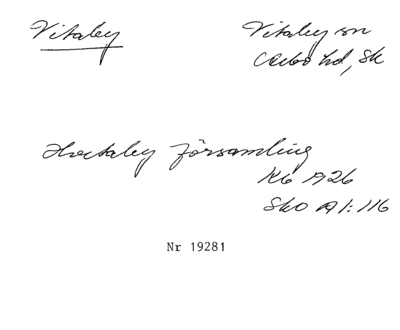 Vitaby
Vitaby sn
Albo hd, Sk
Vitaby församling
Kb 1926
Sko A1:116
Nr 19281